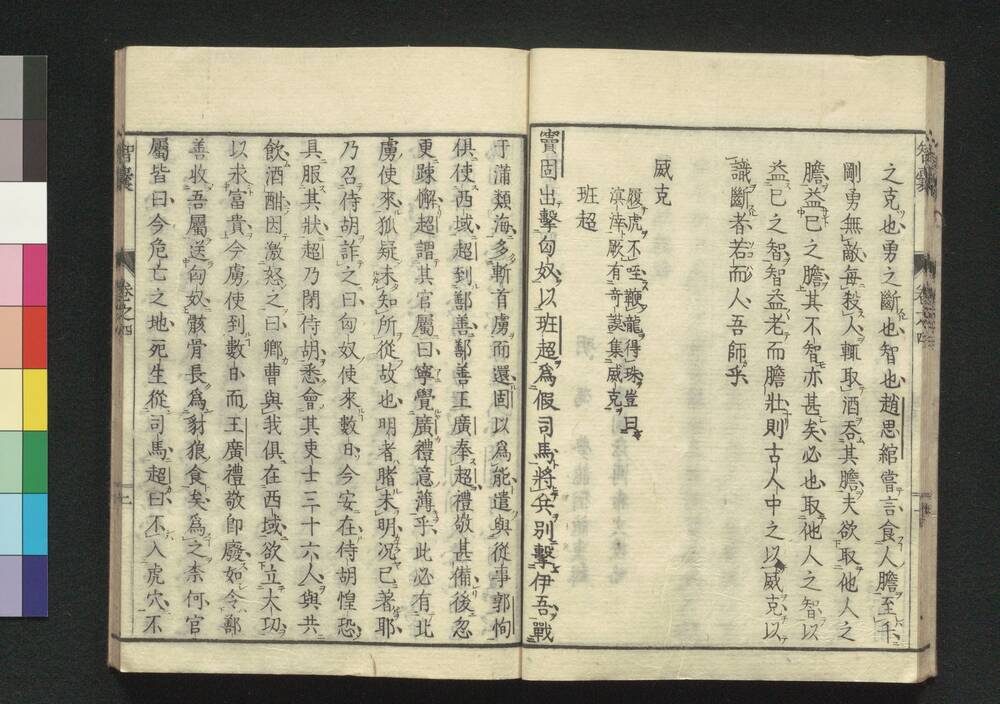 之克也勇之斷也智也趙思綰嘗言食人膽至千
剛勇無敵每殺人輒取酒吞其膽夫欲取他人之
膽益己之膽其不智亦甚矣必也取他人之智以
益己之智智益老而膽壯則古人中之以威克以
識斷者若而人吾師乎
威克
履虎不咥鞭龍得珠豈曰
溟涬厥有奇謨集威克
班超
竇固出擊匈奴以班超爲假司馬將兵別擊伊吾戰
于蒲類海多斬首虜而還固以爲能遣與從事郭恂
俱使西域超到鄯善鄯善王廣奉超禮敬甚備後忽
更踈懈超謂其官屬曰寧覺廣禮意薄乎此必有北
虜使來狐疑未知所從故也明者睹未明況已著耶
乃召侍胡詐之曰匈奴使來數日今安在侍胡惶恐
具服其狀超乃閉侍胡悉會其吏士三十六人與共
飲酒酣因激怒之曰卿曹與我俱在西域欲立大功
以求富貴今虜使到數日而王廣禮敬卽廢如令鄯
善收吾屬送匈奴骸骨長爲豺狼食矣爲之柰何官
屬皆曰今危亡之地死生從司馬超曰不入虎穴不
智囊
卷之四